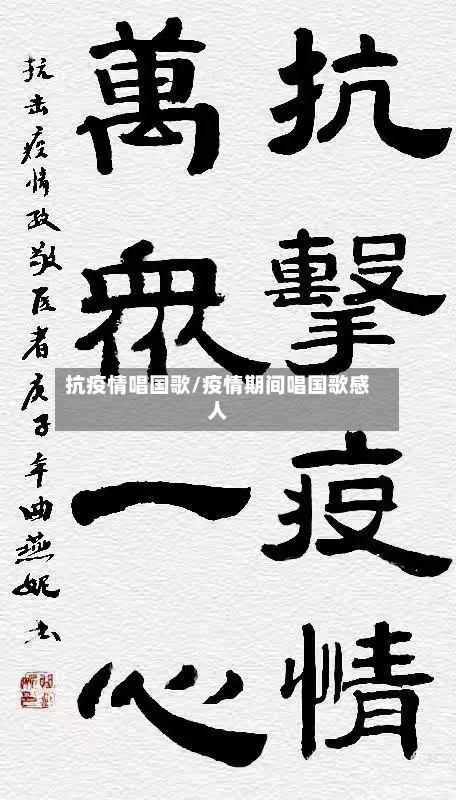 抗擊疫情
萬衆一心
抗击疫情致敬医者庚子年曲燕妮书
抗疫情唱国歌/疫情期间唱国歌感
人